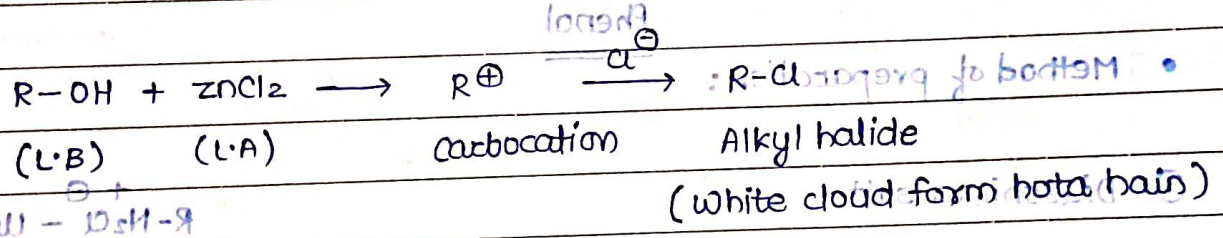 Cl⊖
R-OH + ZnCl2 ⟶ R⊕ ⟶ R-Cl
(L·B) (L·A) Carbocation Alkyl halide
(White cloud form hota hain)